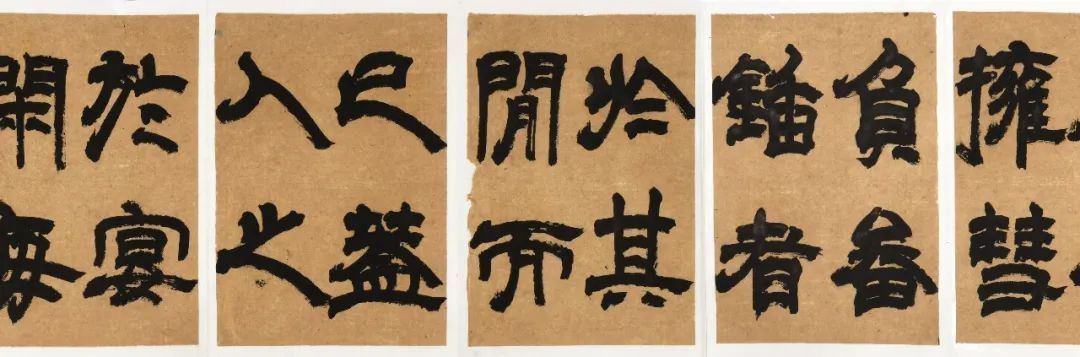 擁彗
負畚
鍤者
於其
閒而
已蓋
人之
於宴
閑每